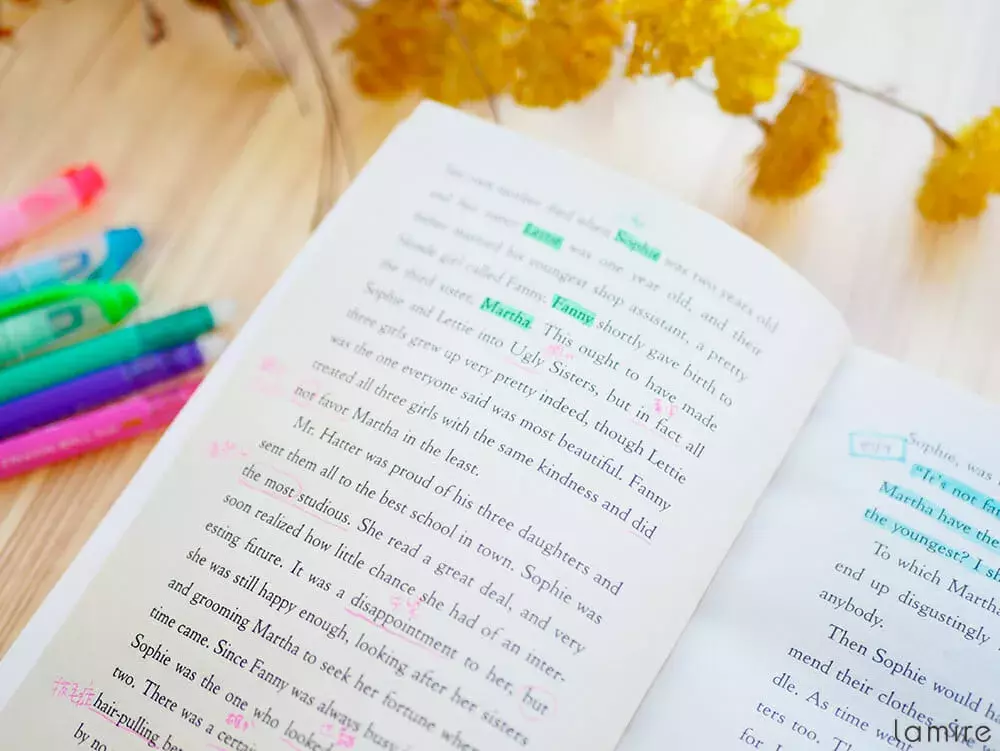 her own mother died when Sophie was two years old
and her sister Lettie was one year old, and their
father married his youngest shop assistant, a pretty
blonde girl called Fanny. Fanny shortly gave birth to
the third sister, Martha. This ought to have made
Sophie and Lettie into Ugly Sisters, but in fact all
three girls grew up very pretty indeed, though Lettie
was the one everyone said was most beautiful. Fanny
treated all three girls with the same kindness and did
not favor Martha in the least.
Mr. Hatter was proud of his three daughters and
sent them all to the best school in town. Sophie was
the most studious. She read a great deal, and very
soon realized how little chance she had of an inter-
esting future. It was a disappointment to her, but
she was still happy enough, looking after her sisters
and grooming Martha to seek her fortune when
time came. Since Fanny was always busy
Sophie was the one who looked
two. There was a certain
hair-pulling
by no
Sophie, was
"It's not fa
Martha have the
the youngest? I sh
To which Martha
end up disgustingly
anybody.
Then Sophie would h
mend their clothes.
dle. As time we
ters too. Th
for L
lamire